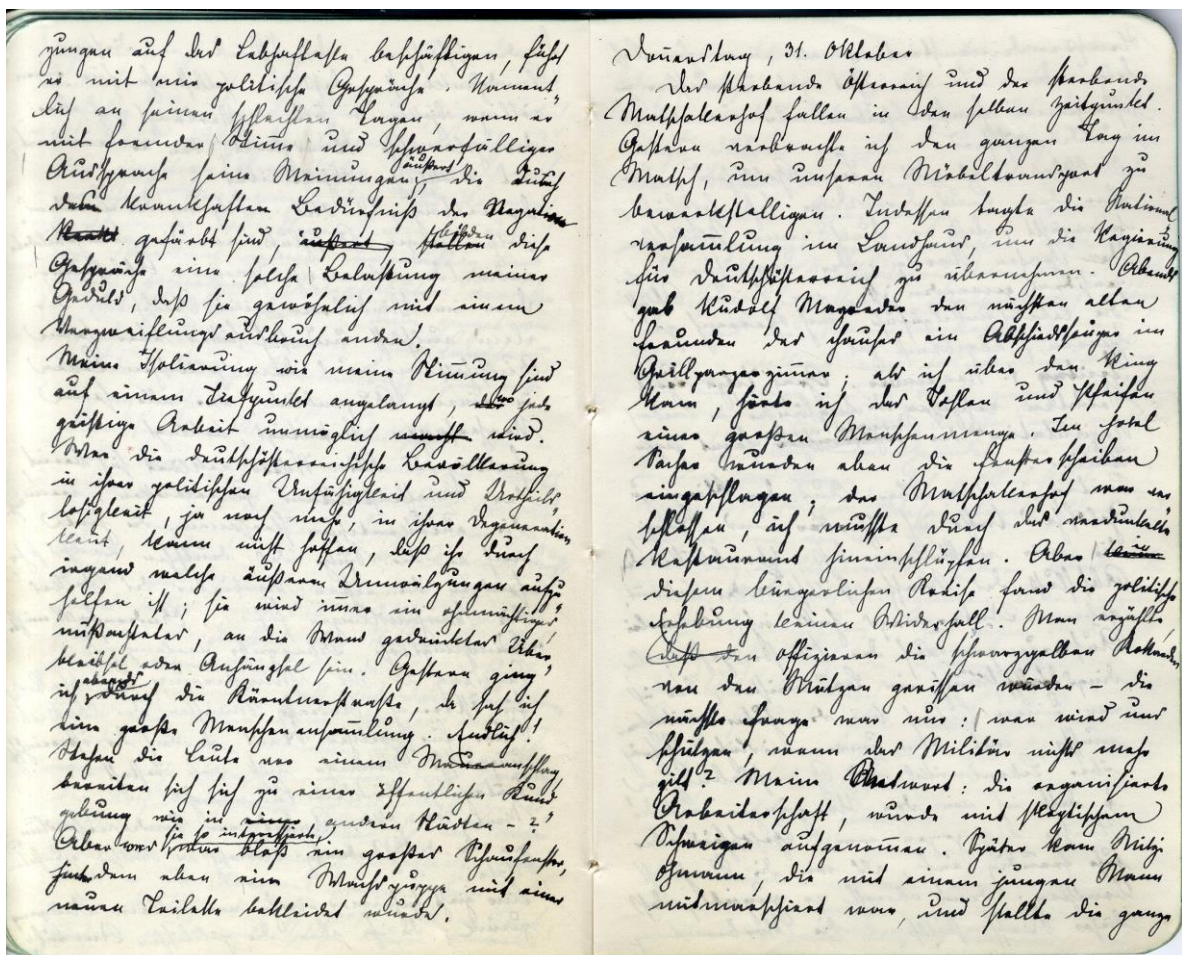 gungen auf das Lebhafteste beschäftigen, führt
er mit mir politische Gespräche. Nament"
lich an seinen schlechten Tagen, wenn er
mit fremder Stimme und schwerfälliger
Aussprache seine Meinungen, äußert die durch
das krankhaften Bedürfniß der Negation
gefärbt sind, äußert, stellen bilden diese
Gespräche eine solche Belastung meiner
Geduld, daß sie gewöhnlich mit einem
Verzweiflungsausbruch enden.
Meine Isolierung wie meine Stimmung sind
auf einem Tiefpunkt angelangt, der wo jede
geistige Arbeit unmöglich macht wird.
Wer die deutschösterreichische Bevölkerung
in ihrer politischen Unfähigkeit und Urtheils"
losigkeit, ja noch mehr, in ihrer Degeneration
kennt, kann nicht hoffen, daß ihr durch
irgend welche äußeren Umwälzungen aufzu"
helfen ist; sie wird immer ein ohnmächtiger,
mißachteter, an die Wand gedrückter Über"
bleibsel oder Anhängsel sein. Gestern ging
ich abends durch die Kärntnerstraße, da sah ich
eine große Menschenansammlung. Endlich!
Stehen die Leute vor einem Maueranschlag,
bereiten sich sich zu einer öffentlichen Kund"
gebung wie in einer andern Städten – ?
Aber was sie so interessierte, war bloß ein großes Schaufenster,
in dem eben eine Wachspuppe mit einer
neuen Toilette bekleidet wurde.
Donnerstag, 31. Oktober
Das sterbende Österreich und der sterbende
Matschakerhof fallen in den selben Zeitpunkt.
Gestern verbrachte ich den ganzen Tag im
Matsch, um unseren Möbeltransport zu
bewerkstelligen. Indessen tagte die National
versammlung im Landhaus, um die Regierung
für Deutschösterreich zu übernehmen. Abends
gab Rudolf Mayreder den nächsten alten
Freunden des Hauses ein Abschiedssouper im
Grillparzerzimmer; als ich über den Ring
kam, hörte ich das Johlen und Pfeifen
einer großen Menschenmenge. Im Hotel
Sacher wurden eben die Fensterscheiben
eingeschlagen; der Matschakerhof war ver"
schlossen, ich musste durch das verdunkelte
Restaurant hineinschlüpfen. Aber in
diesem bürgerlichen Kreise fand die politische
Erhebung keinen Widerhall. Man erzählte,
daß den Offizieren die schwarzgelben Kokarden
von den Mützen gerissen wurden – die
nächste Frage war nur: wer wird uns
schützen, wenn das Militär nichts mehr
gilt? Meine Antwort: die organisierte
Arbeiterschaft, wurde mit skeptischem
Schweigen aufgenommen. Später kam Mitzi
Ohmann, die mit einem jungen Mann
mitmarschiert war, und stellte die ganze